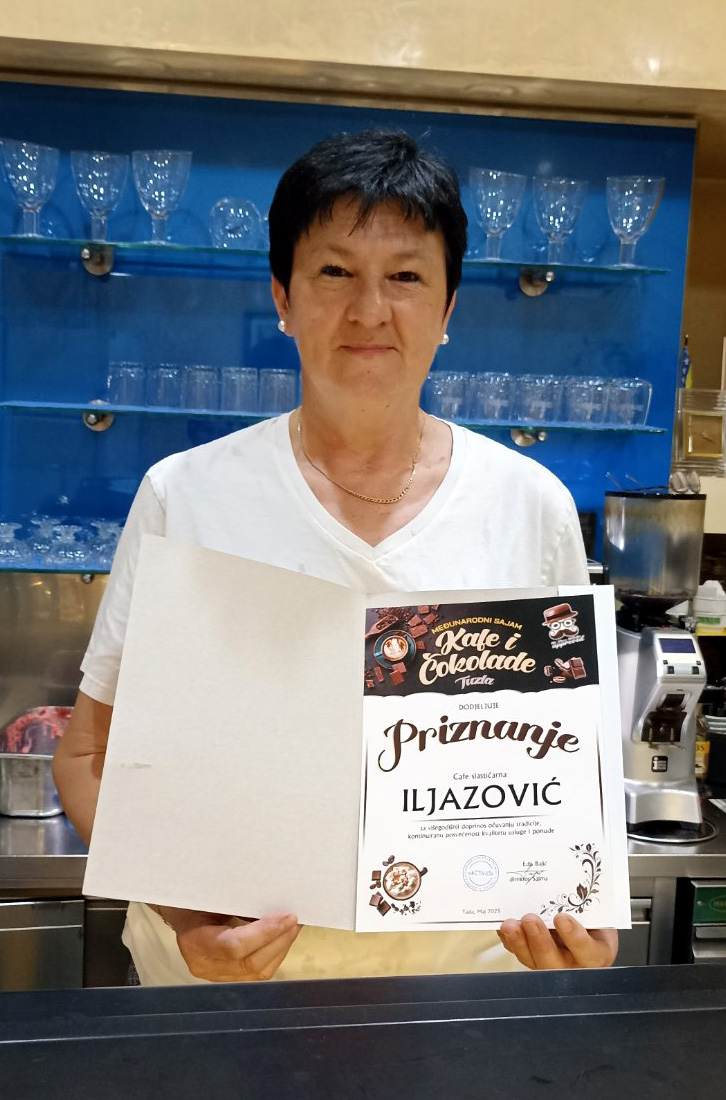 MEĐUNARODNI SAJAM
Kafe i
Čokolade
Tuzla
DODJELJUJE
Priznanje
Cafe slastičarna
ILJAZOVIĆ
za višegodišnji doprinos očuvanju tradicije,
kontinuiranu posvećenost kvalitetu usluge i ponude
direktor Sajma
Tuzla, Maj 2025